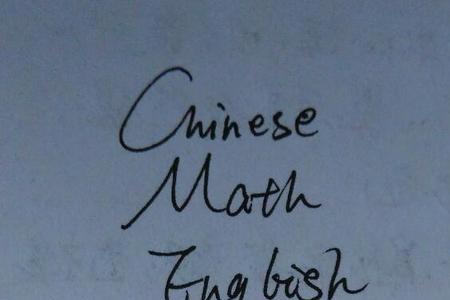 Chinese
Math
English